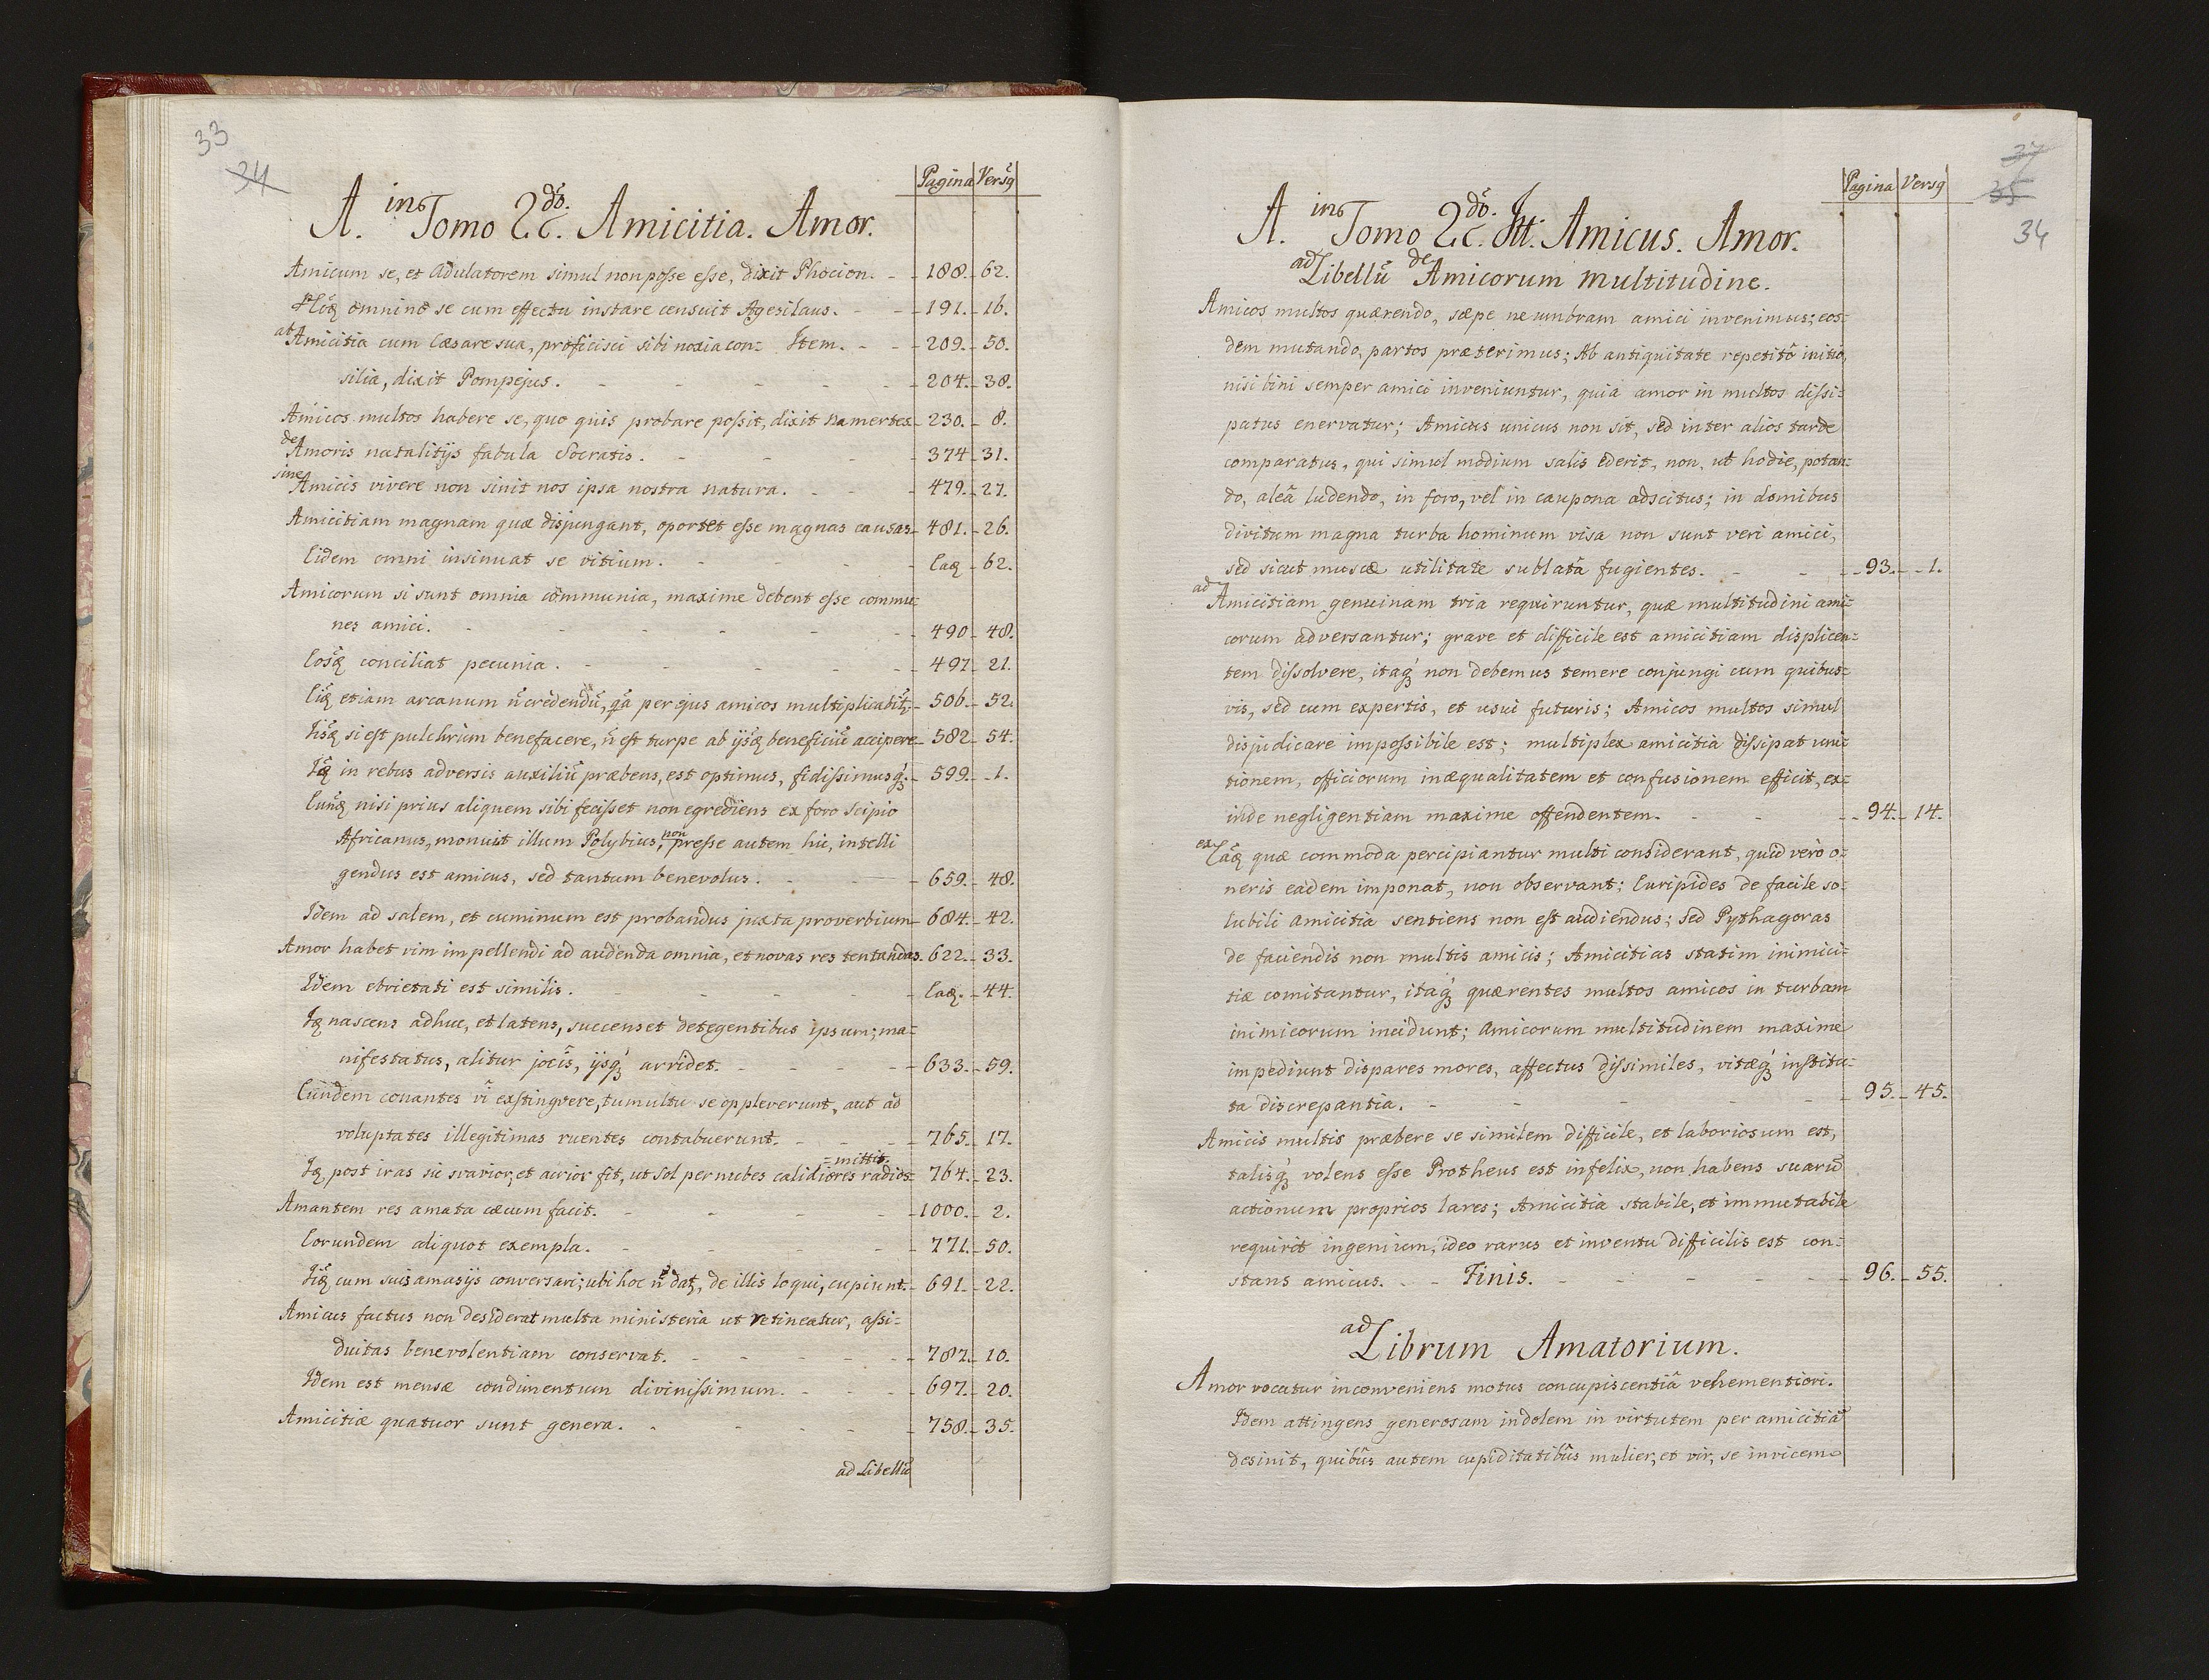 33
34
Pagina Versq̃
A. in Tomo 2do. Amicitia. Amor.
Amicum se, et Adulatorem simul non posse esse, dixit Phocion. - - 188. - 62.
omnino se cum effectu instare censuit Agesilaus. - - 191. - 16.
at Amicitia cum Cæsare sua, proficisci sibi noxia con= Item. - - 209. - 50.
silia, dixit Pompejus. - - - - - 204. - 38.
Amicos multos habere se, quo quis probare possit, dixit Namertes - 230. - 8.
de Amoris natalitijs fabula Socratis. - - - - 374 - 31.
sine Amicis vivere non sinit nos ipsa nostra natura. - - - 479. - 27.
Amicitiam magnam quæ disjungant, oportet esse magnas causas - 481. - 26.
Eidem omni insinuat se vitium. - - - - Eaq - 62.
Amicorum si sunt omnia communia, maxime debent esse commu=
nes amici. - - - - - - 490 - 48.
conciliat pecunia. - - - - - 497 - 21.
etiam arcanum ñ credendũ, qã per ejus amicos multiplicabit. - 506. - 52.
si est pulchrum benefacere, ñ est turpe ab beneficiũ accipere - 582 - 54.
in rebus adversis auxiliũ præbens, est optimus, fidissimusq́. - 599. - 1.
nisi prius aliquem sibi fecisset non egrediens ex foro Scipio
Africanus, monuit illum Polybius, non presse autem hic, intelli
gendus est amicus, sed tantum benevolus. - - 659. - 48.
Idem ad salem, et cuminum est probandus juxta proverbium - 684. - 42.
Amor habet vim impellendi ad audenda omnia, et novas res tentandas. 622. - 33.
Idem ebrietati est similis. - - - - Eaq. - 44.
Iq nascens adhuc, et latens, succenset detegentibus ipsum; ma=
nifestatus, alitur jocis, ijsq́ arridet. - - - - 633. - 59.
Eundem conantes vi exstingvere, tumultu se oppleverunt, aut ad
voluptates illegitimas ruentes contabuerunt. - - - 765. - 17.
=mittit.
Iq post iras sic svavior, et acrior fit, ut Sol per nubes calidiores radios= 764. - 23.
Amantem res amata cæcum facit. - - - - 1000. - 2.
Eorundem aliquot exempla. - - - - 771. - 50.
cum suis amasijs conversari; ubi hoc ñ datq, de illis loqui, cupiunt. - 691. - 22.
Amicus factus non desiderat multa ministeria ut retineatur, assi=
duitas benevolentiam conservat. - - - - 787. - 10.
Idem est mensæ condimentum divinissimum. - - - 697. - 20.
Amicitiæ quatuor sunt genera. - - - - 758. - 35.
ad Libellũ
37
35
34
Pagina Versq
A. in Tomo 2do. Itt. Amicus. Amor.
ad Libellũ de Amicorum multitudine.
Amicos multos quærendo, sæpe ne umbram amici invenimus; eos=
dem mutando, partos præterimus; Ab antiquitate repetitô initio,
nisi bini semper amici inveniuntur, quia amor in multos dissi=
patus enervatur; Amicus unicus non sit, sed inter alios tarde
comparatus, qui simul modium salis ederit, non, ut hodie, potan=
do, aleâ ludendo, in foro, vel in caupona adscitus; in domibus
divitum magna turba hominum visa non sunt veri amici,
sed sicut muscæ utilitate sublatâ fugientes. - - - 93. - 1.
ad Amicitiam genuinam tria requiruntur, quæ multitudini ami=
corum adversantur; grave et difficile est amicitiam displicen=
tem dissolvere, itaq́ non debemus temere conjungi cum quibus=
vis, sed cum expertis, et usui futuris; Amicos multos simul
disjudicare impossibile est; multiplex amicitia dissipat uni=
tionem, officiorum inæqualitatem et confusionem efficit, ex=
inde negligentiam maxime offendentem. - - - 94. - 14.
ex Eâq quæ commoda percipiantur multi considerant, quid verò o=
neris eadem imponat, non observant; Euripides de facile so=
lubili amicitia sentiens non est audiendus; Sed Pythagoras
de faciendis non multis amicis; Amicitias statim inimici=
tiæ comitantur, itaq́ quærentes multos amicos in turbam
inimicorum incidunt; Amicorum multitudinem maxime
impediunt dispares mores, affectus dissimiles, vitæq́ institu=
ta discrepantia. - - - - - 95. - 45.
Amicis multis præbere se similem difficile, et laboriosum est,
talisq́ volens esse Protheus est infelix, non habens suarũ
actionum proprios lares; Amicitia stabile, et immutabile
requirit ingenium, ideo rarus et inventu difficilis est con=
stans amicus. - - Finis. - - - - 96. - 55.
ad Librum Amatorium.
Amor vocatur inconveniens motus concupiscentiâ vehementiori.
Idem attingens generosam indolem in virtutem per amicitiã
desinit, quibũs autem cupiditatibũs mulier, et vir, se invicem